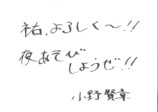 祐、よろしく〜!!
夜あそび
しようぜ!!
小野賢章